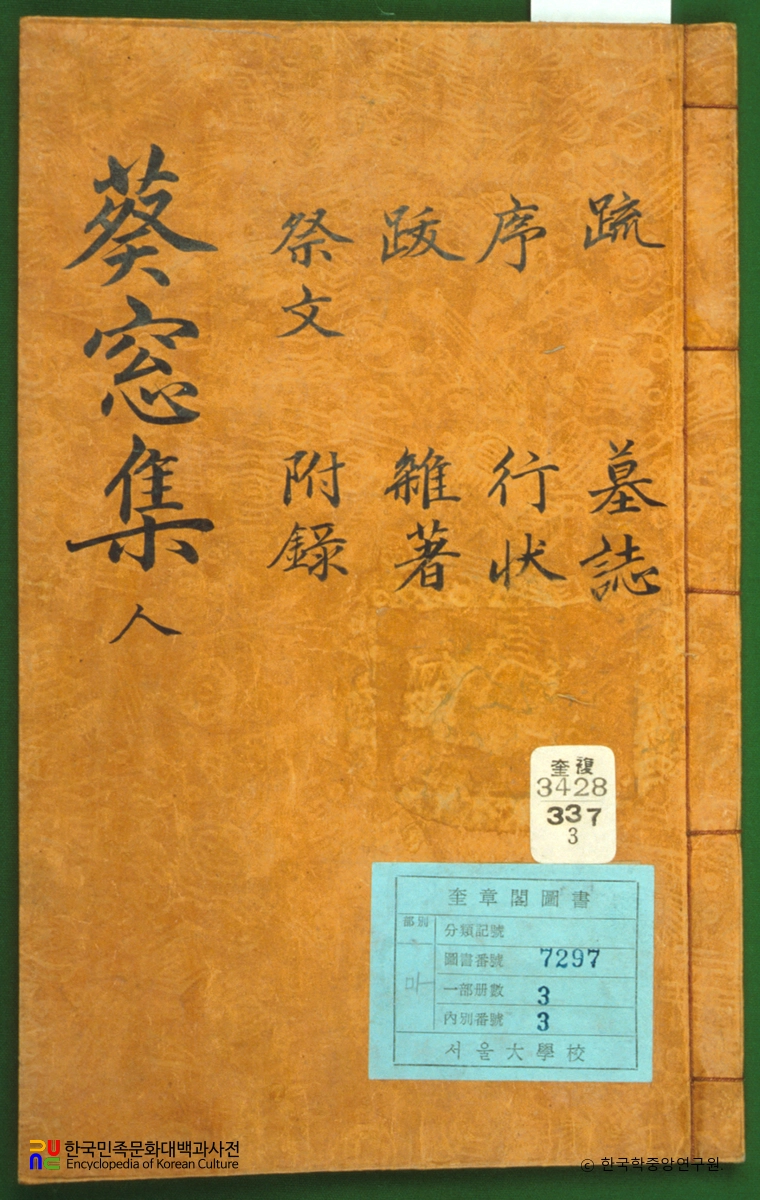 疏 墓誌
序 行狀
跋 雜著
祭文 附錄
葵窓集 人
奎 複
3428
337
3
奎章閣圖書
部別
分類記號
圖書番號 7297
一部册數 3
內別番號 3
서울大學校
한국민족문화대백과사전
Encyclopedia of Korean Culture
© 한국학중앙연구원